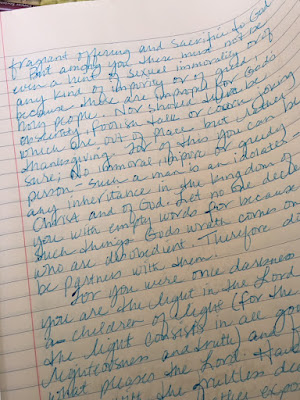 fragrant offering and sacrifice to God
But among you there must not be
even a hint of sexual immorality or of
any kind of impurity or of greed
because these are improper for God's
holy people. Nor should there be
obscenity, foolish talk or coarse joking
which are out of place but rather
thanksgiving. For of this you can be
sure; No immoral, impure or greedy
person - such a man is an idolater
any inheritance in the kingdom of
Christ and of God. Let no one dece
you with empty words for because
such things God's wrath comes on
who are disobedient. Therefore do
be partners with them.
For you were once darkness
you are the light in the Lord
as children of light (for the
the light consists in all goo
righteousness and truth) and f
what pleases the Lord. Have
with the fruitless dee
rather expo